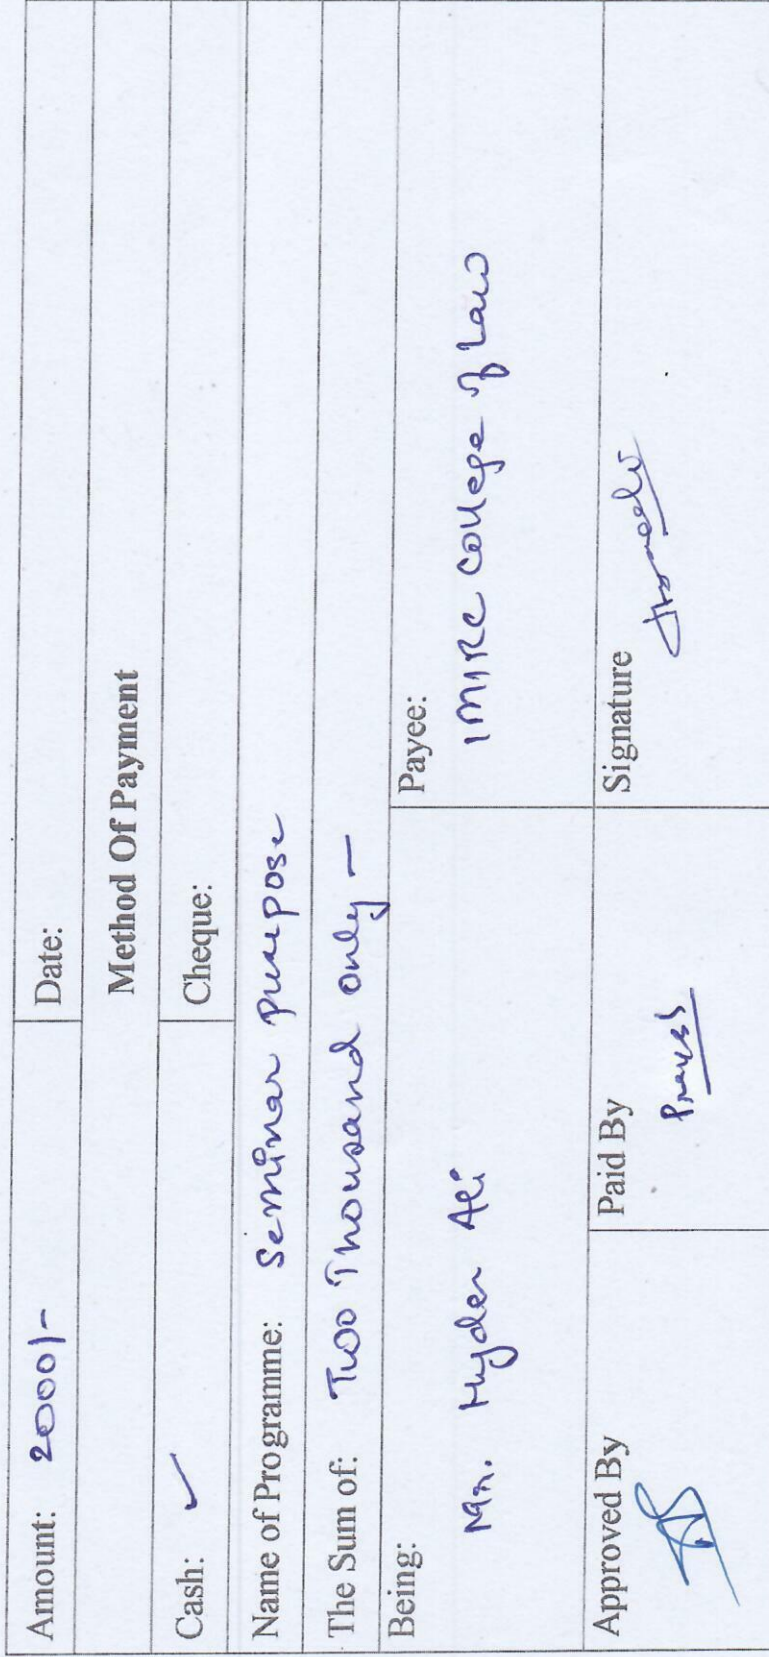 Amount: 2000/- Date:
Method Of Payment
Cash: ✓ Cheque:
Name of Programme: Seminar purpose
The Sum of: Two Thousand only —
Being: Payee:
Mr. Hyder Ali IMIRC College of Law
Approved By Paid By Signature